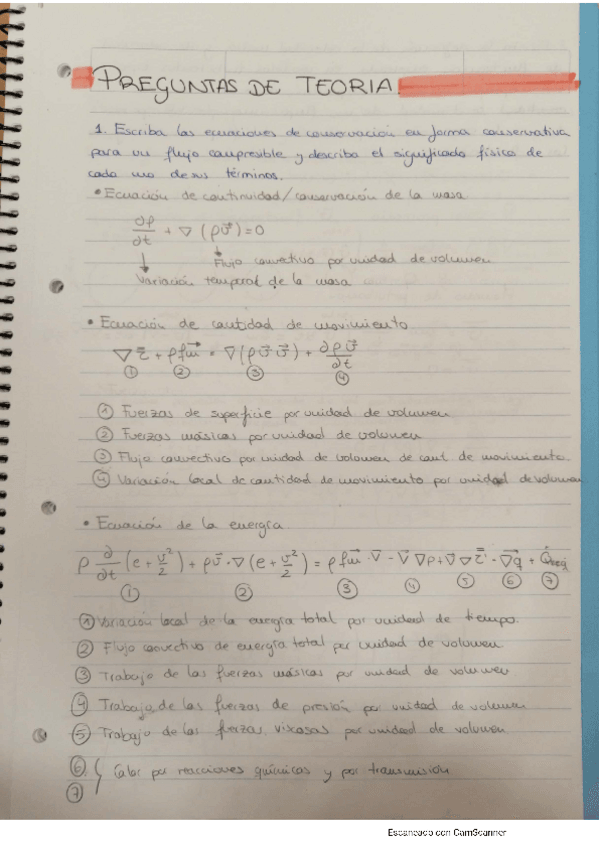 PREGUNTAS DE TEORIA
1. Escriba las ecuaciones de conservación en forma conservativa
para un flujo compresible y describa el significado físico de
cada uno de sus términos.
• Ecuación de continuidad/conservación de la masa
∂ρ/∂t + ∇ (ρv⃗) = 0
Flujo convectivo por unidad de volumen
Variación temporal de la masa
• Ecuación de cantidad de movimiento
∇ τ̿ + ρ f⃗m = ∇(ρ v⃗ v⃗) + ∂ρv⃗/∂t
① ② ③ ④
① Fuerzas de superficie por unidad de volumen
② Fuerzas másicas por unidad de volumen
③ Flujo convectivo por unidad de volumen de cant de movimiento.
④ Variación local de cantidad de movimiento por unidad de volumen
• Ecuación de la energía
ρ ∂/∂t (e + v²/2) + ρv⃗ · ∇ (e + v²/2) = ρ f⃗m · v⃗ - v⃗ ∇p + v⃗ ∇ τ̿' - ∇q⃗ + Q̇
① ② ③ ④ ⑤ ⑥ ⑦
① Variación local de la energía total por unidad de tiempo.
② Flujo convectivo de energía total por unidad de volumen
③ Trabajo de las fuerzas másicas por unidad de volumen
④ Trabajo de las fuerzas de presión por unidad de volumen
⑤ Trabajo de las fuerzas vixosas por unidad de volumen
⑥ { Calor por reacciones químicas y por transmisión
⑦
Escaneado con CamScanner